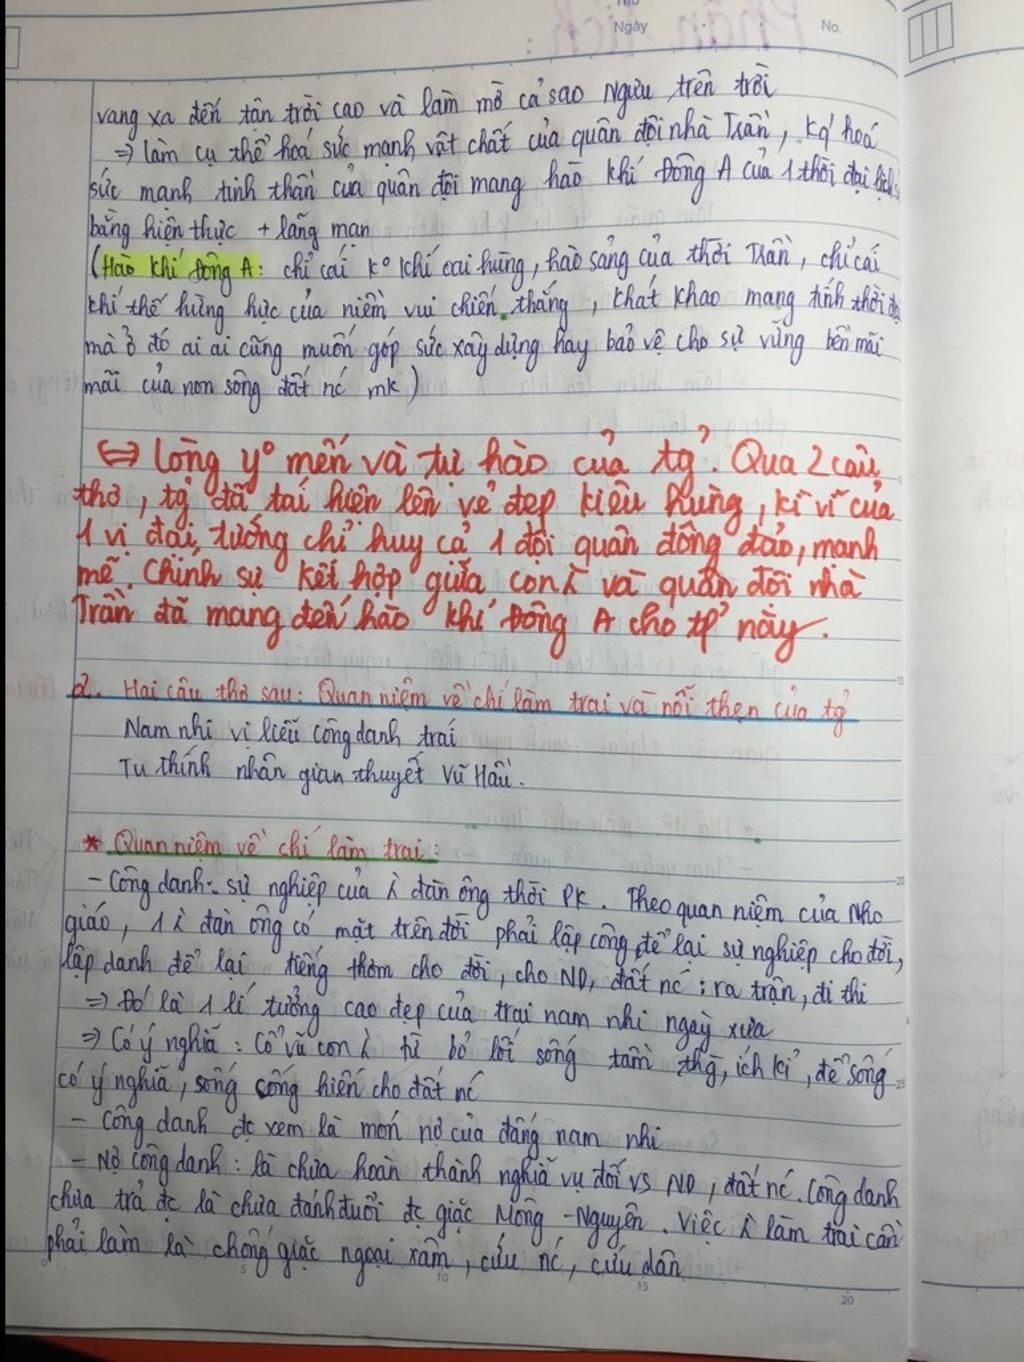 Ngày
No.
vang xa đến tận trời cao và làm mờ cả sao Ngưu trên trời
⇒ làm cụ thể hoá sức mạnh vật chất của quân đội nhà Trần, kq' hoá
sức mạnh tinh thần của quân đội mang hào khí Đông A của 1 thời đại
bằng hiện thực + lãng mạn
(Hào khí Đông A: chỉ cái k° khí oai hùng, hào sảng của thời Trần, chỉ cái
khí thế hừng hực của niềm vui chiến thắng, khát khao mang tính thời đại
mà ở đó ai ai cũng muốn góp sức xây dựng hay bảo vệ cho sự vững bền mãi
mãi của non sông đất nc mk)
⇔ lòng y° mến và tự hào của tg'. Qua 2 câu
thơ, tg' đã tái hiện lên vẻ đẹp kiêu hùng, kì vĩ của
1 vị đại tướng chỉ huy cả 1 đội quân đông đảo, mạnh
mẽ. Chính sự kết hợp giữa con λ và quân đội nhà
Trần đã mang đến hào khí Đông A cho tp' này.
2. Hai câu thơ sau: Quan niệm về chí làm trai và nỗi thẹn của tg'
Nam nhi vị liễu công danh trái
Tu thính nhân gian thuyết Vũ Hầu.
* Quan niệm về chí làm trai:
- Công danh: sự nghiệp của λ đàn ông thời PK. Theo quan niệm của Nho
giáo, 1 λ đàn ông có mặt trên đời phải lập công để lại sự nghiệp cho đời,
lập danh để lại tiếng thơm cho đời, cho ND, đất nc: ra trận, đi thi
⇒ Đó là 1 lí tưởng cao đẹp của trai nam nhi ngày xưa
⇒ Có ý nghĩa: Cổ vũ con λ từ bỏ lối sống tầm thg, ích kỉ, để sống
có ý nghĩa, sống cống hiến cho đất nc
- Công danh đc xem là món nợ của đấng nam nhi
- Nợ công danh: là chưa hoàn thành nghĩa vụ đối vs ND, đất nc. Công danh
chưa trả đc là chưa đánh đuổi đc giặc Mông - Nguyên. Việc λ làm trai cần
phải làm là chống giặc ngoại xâm, cứu nc, cứu dân